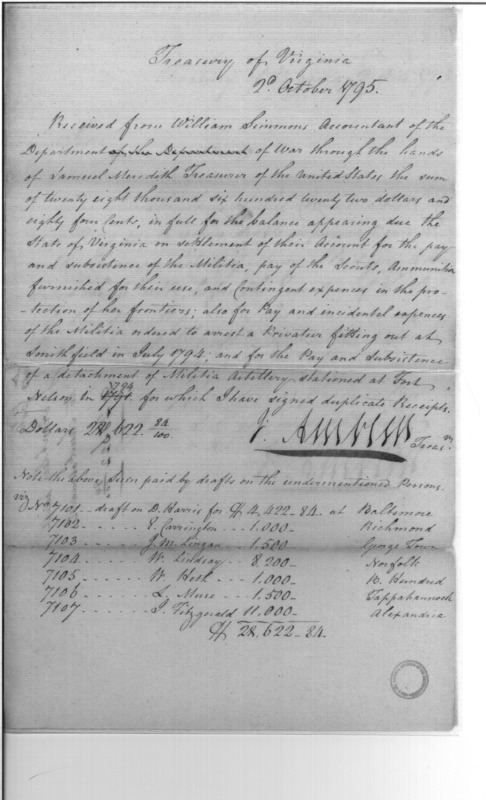 Treasury of Virginia
2d. October 1795.
Received from William Simmons Accountant of the
Department of the Department of War through the hands
of Samuel Meredith Treasurer of the United States the sum
of twenty eight thousand six hundred twenty two dollars and
eighty four Cents, in full for the balance appearing due the
State of Virginia on settlement of their Account for the pay
and subsistence of the Militia, pay of the Scouts, Ammunition
furnished for their use, and Contingent expences in the pro-
-tection of her frontiers; also for Pay and incidental expences
of the Militia ordered to arrest a Privateer fitting out at
Smithfield in July 1794; and for the Pay and Subsistence
of a detachment of Militia Artillery stationed at Fort
Nelson in 1794 for which I have signed duplicate Receipts.
Dollars 28,622. 84/100 J. Ambler Treasr.
Note the above been paid by drafts on the undermentioned Persons
viz No. 7101 - draft on D. Harris for $ 4,422-84. at Baltimore
7102 . . . . . E. Carrington . . 1.000- Richmond
7103 . . . . . J. M. Lingan . . 1.500 George Town
7104 . . . . . W. Lindsay . . 8.200- Norfolk
7105 . . . . . W. Heth . . 1,000- B. Hundred
7106 . . . . . L. Muse . . 1.500- Tappahannock
7107 . . . . . J. Fitzgerald 11.000- Alexandria
$ 28,622-84.